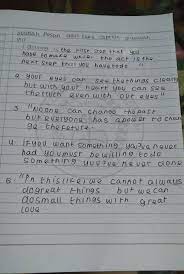 1 driving is the first one that you
have to make while the act is the
next step that you have to do "
2. Your eyes can see the things clearly
but with your heart you can see
the truth even with our eyes"
3. "No one can change the past
but everyone has a power to change
the future
4. If you want something you've never
had you must be willing to do
something you've never done
5. "In this life we cannot always
do great things but we can
do small things with great
love